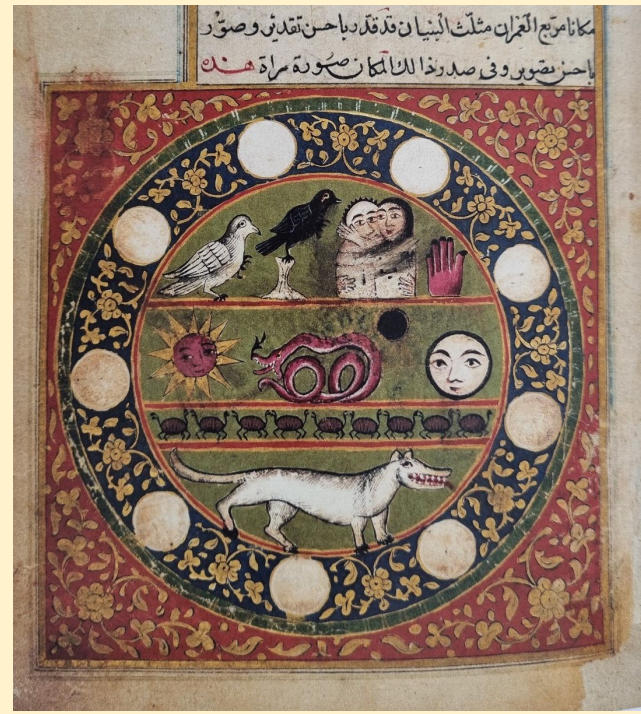 مكانا مربع العمران مثلث البنيان قد قدّر باحسن تقدير وصوّر
باحسن تصوير وفى صدر ذالك المكان صورة مراة هذه